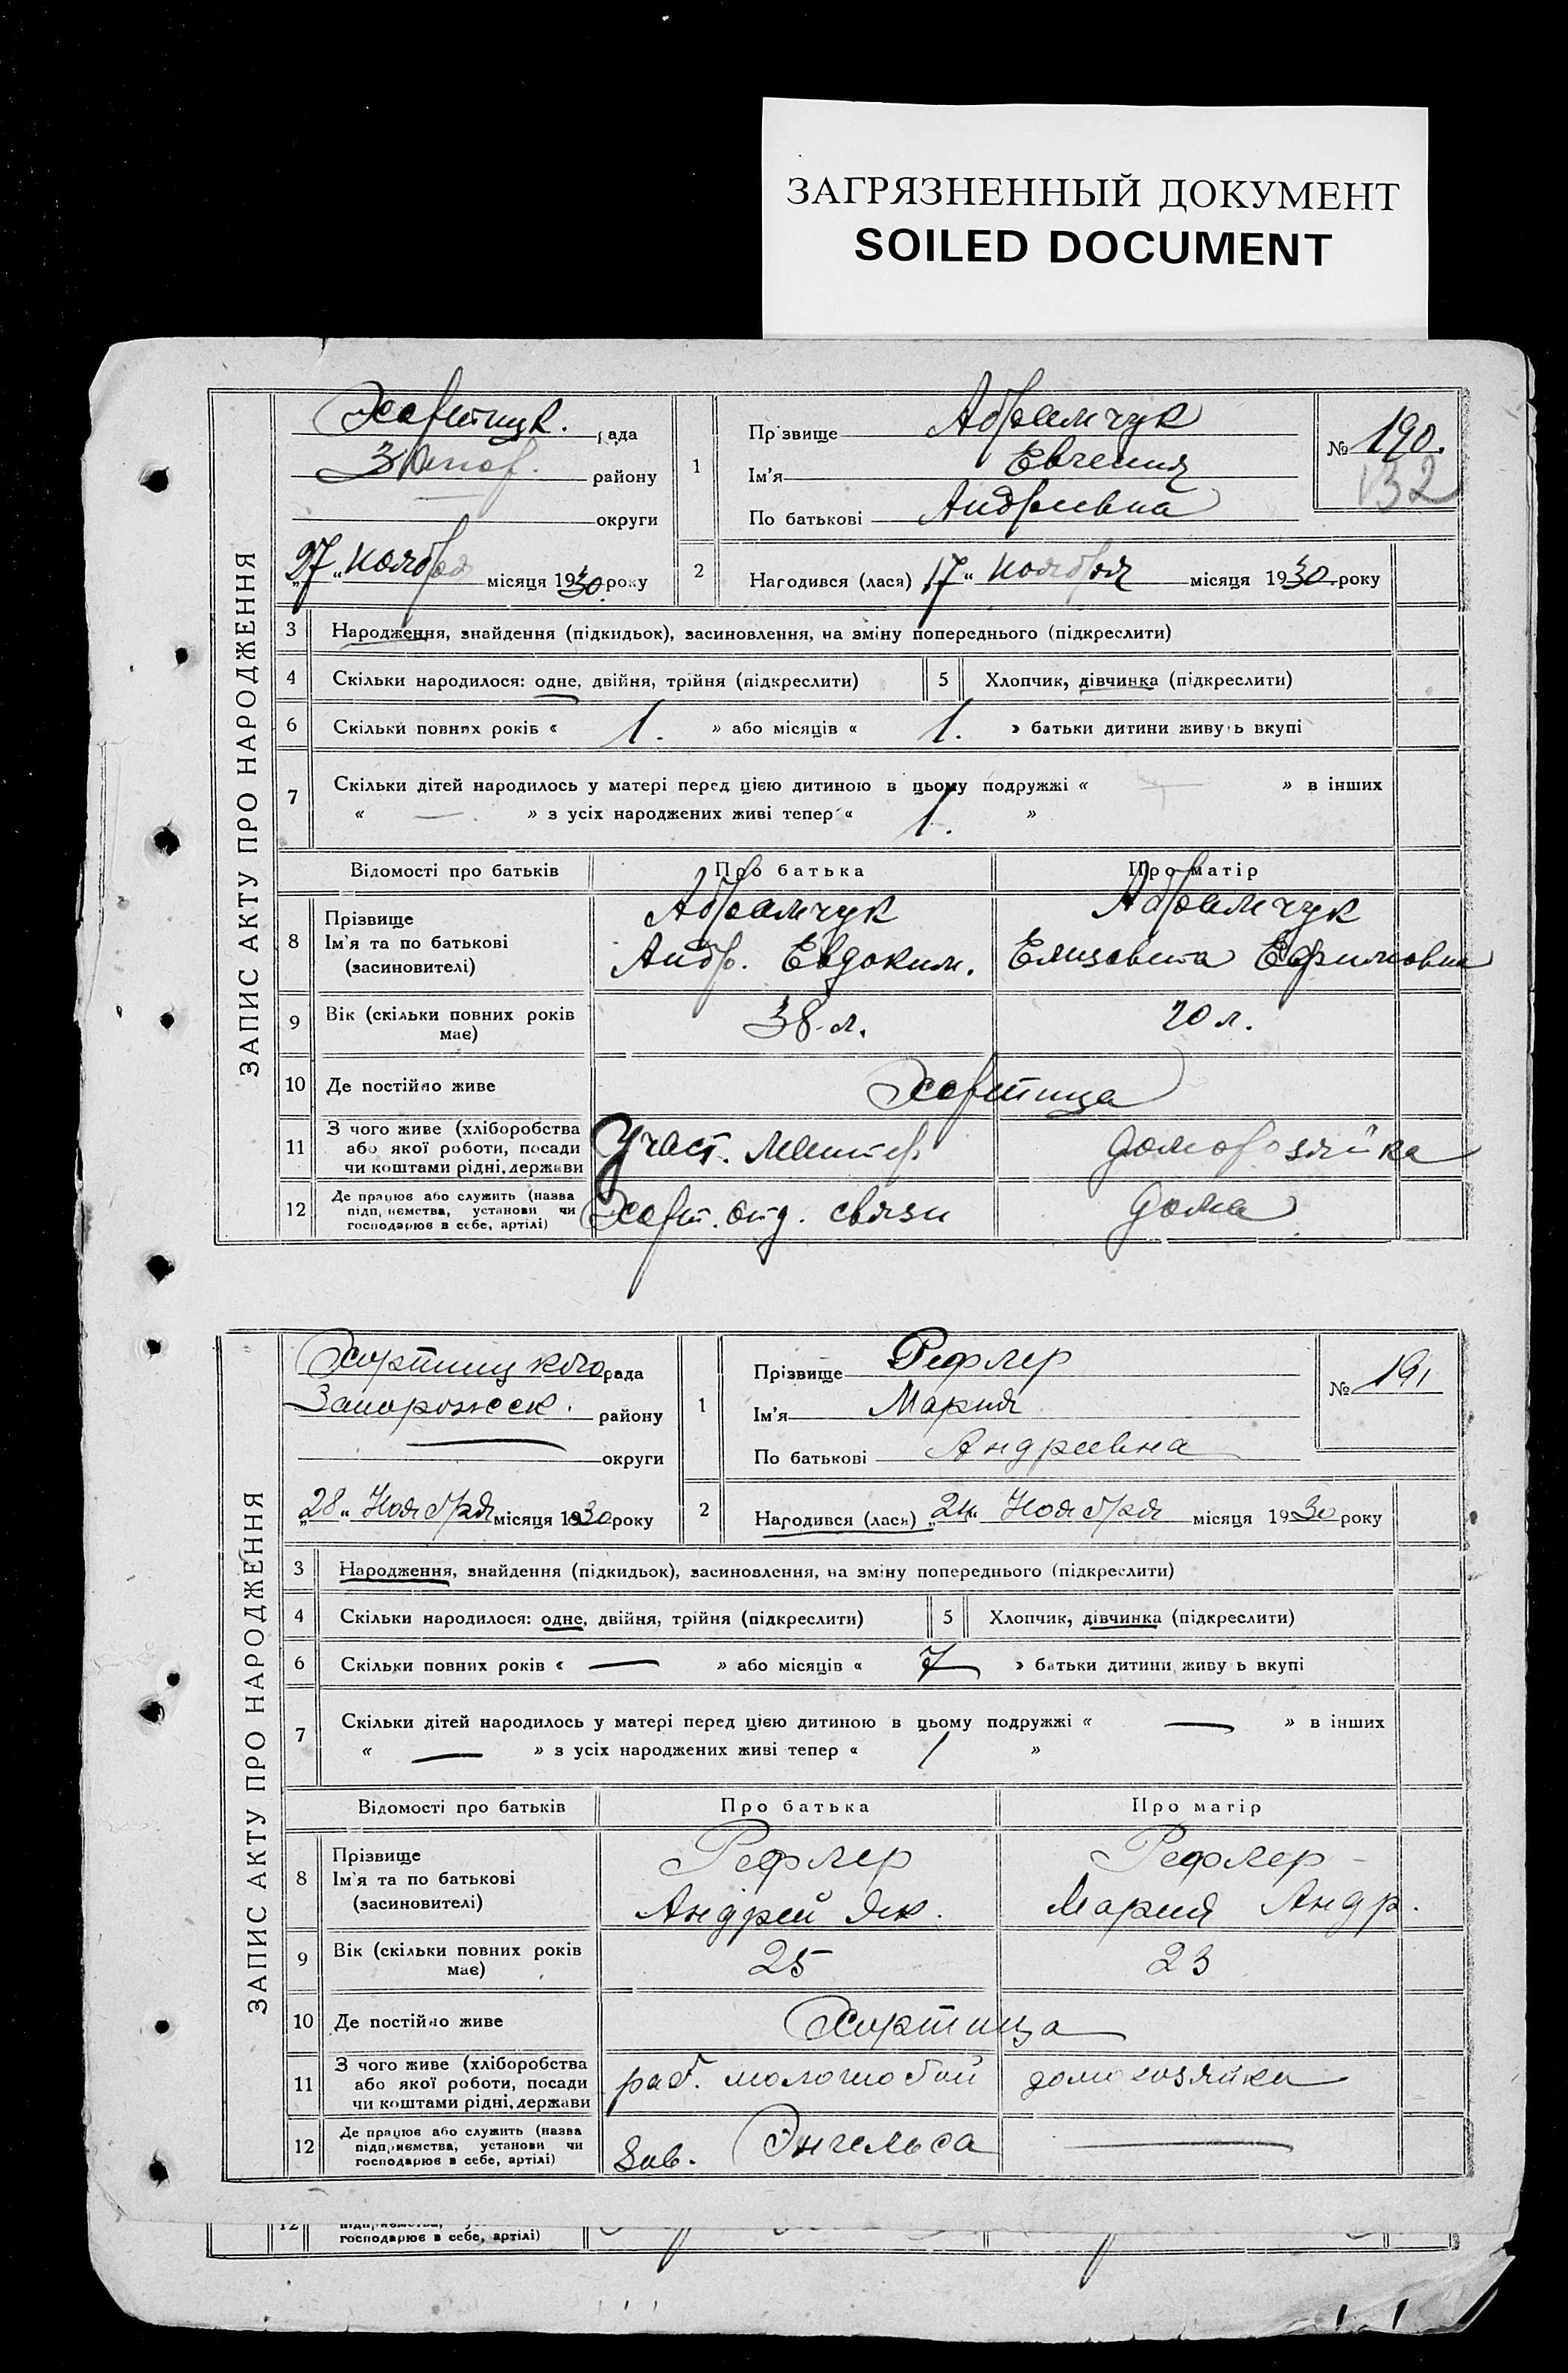 ЗАГРЯЗНЕННЫЙ ДОКУМЕНТ
SOILED DOCUMENT
ЗАПИС АКТУ ПРО НАРОДЖЕННЯ
Хортицк. рада
Запор. району
округи
"27" ноября місяця 1930 року
1 Прізвище Абрамчук
Ім'я Евгения
По батькові Андреевна
№ 190.
132
2 Народився (лася) "17" ноября місяця 1930 року
3 Народження, знайдення (підкидьок), засиновлення, на зміну попереднього (підкреслити)
4 Скільки народилося: одне, двійня, трійня (підкреслити) 5 Хлопчик, дівчинка (підкреслити)
6 Скільки повних років « 1. » або місяців « 1. » батьки дитини живуть вкупі
7 Скільки дітей народилось у матері перед цією дитиною в цьому подружжі « — » в інших
« — . » з усіх народжених живі тепер « 1. »
Відомості про батьків Про батька Про матір
8 Прізвище Абрамчук Абрамчук
Ім'я та по батькові Андр. Евдоким. Елизавета Ефимовна
(засиновителі)
9 Вік (скільки повних років має) 38 л. 20 л.
10 Де постійно живе Хортица
11 З чого живе (хліборобства
або якої роботи, посади Участ. монтер домохозяйка
чи коштами рідні, держави
12 Де працює або служить (назва
підприємства, установи чи Хорт. отд. связи дома
господарює в себе, артілі)
ЗАПИС АКТУ ПРО НАРОДЖЕННЯ
Хортицкого рада
Запорожск. району
— округи
"28" Ноября місяця 1930 року
1 Прізвище Рефлер
Ім'я Мария
По батькові Андреевна
№ 191
2 Народився (лася) "24" Ноября місяця 1930 року
3 Народження, знайдення (підкидьок), засиновлення, на зміну попереднього (підкреслити)
4 Скільки народилося: одне, двійня, трійня (підкреслити) 5 Хлопчик, дівчинка (підкреслити)
6 Скільки повних років « — » або місяців « 7 » батьки дитини живуть вкупі
7 Скільки дітей народилось у матері перед цією дитиною в цьому подружжі « — » в інших
« — » з усіх народжених живі тепер « 1 »
Відомості про батьків Про батька Про матір
8 Прізвище Рефлер Рефлер
Ім'я та по батькові Андрей Як. Мария Андр.
(засиновителі)
9 Вік (скільки повних років має) 25 23
10 Де постійно живе Хортица
11 З чого живе (хліборобства
або якої роботи, посади раб. молотобой домохозяйка
чи коштами рідні, держави
12 Де працює або служить (назва
підприємства, установи чи Зав. Энгельса —
господарює в себе, артілі)
12
господарює в себе, артілі)